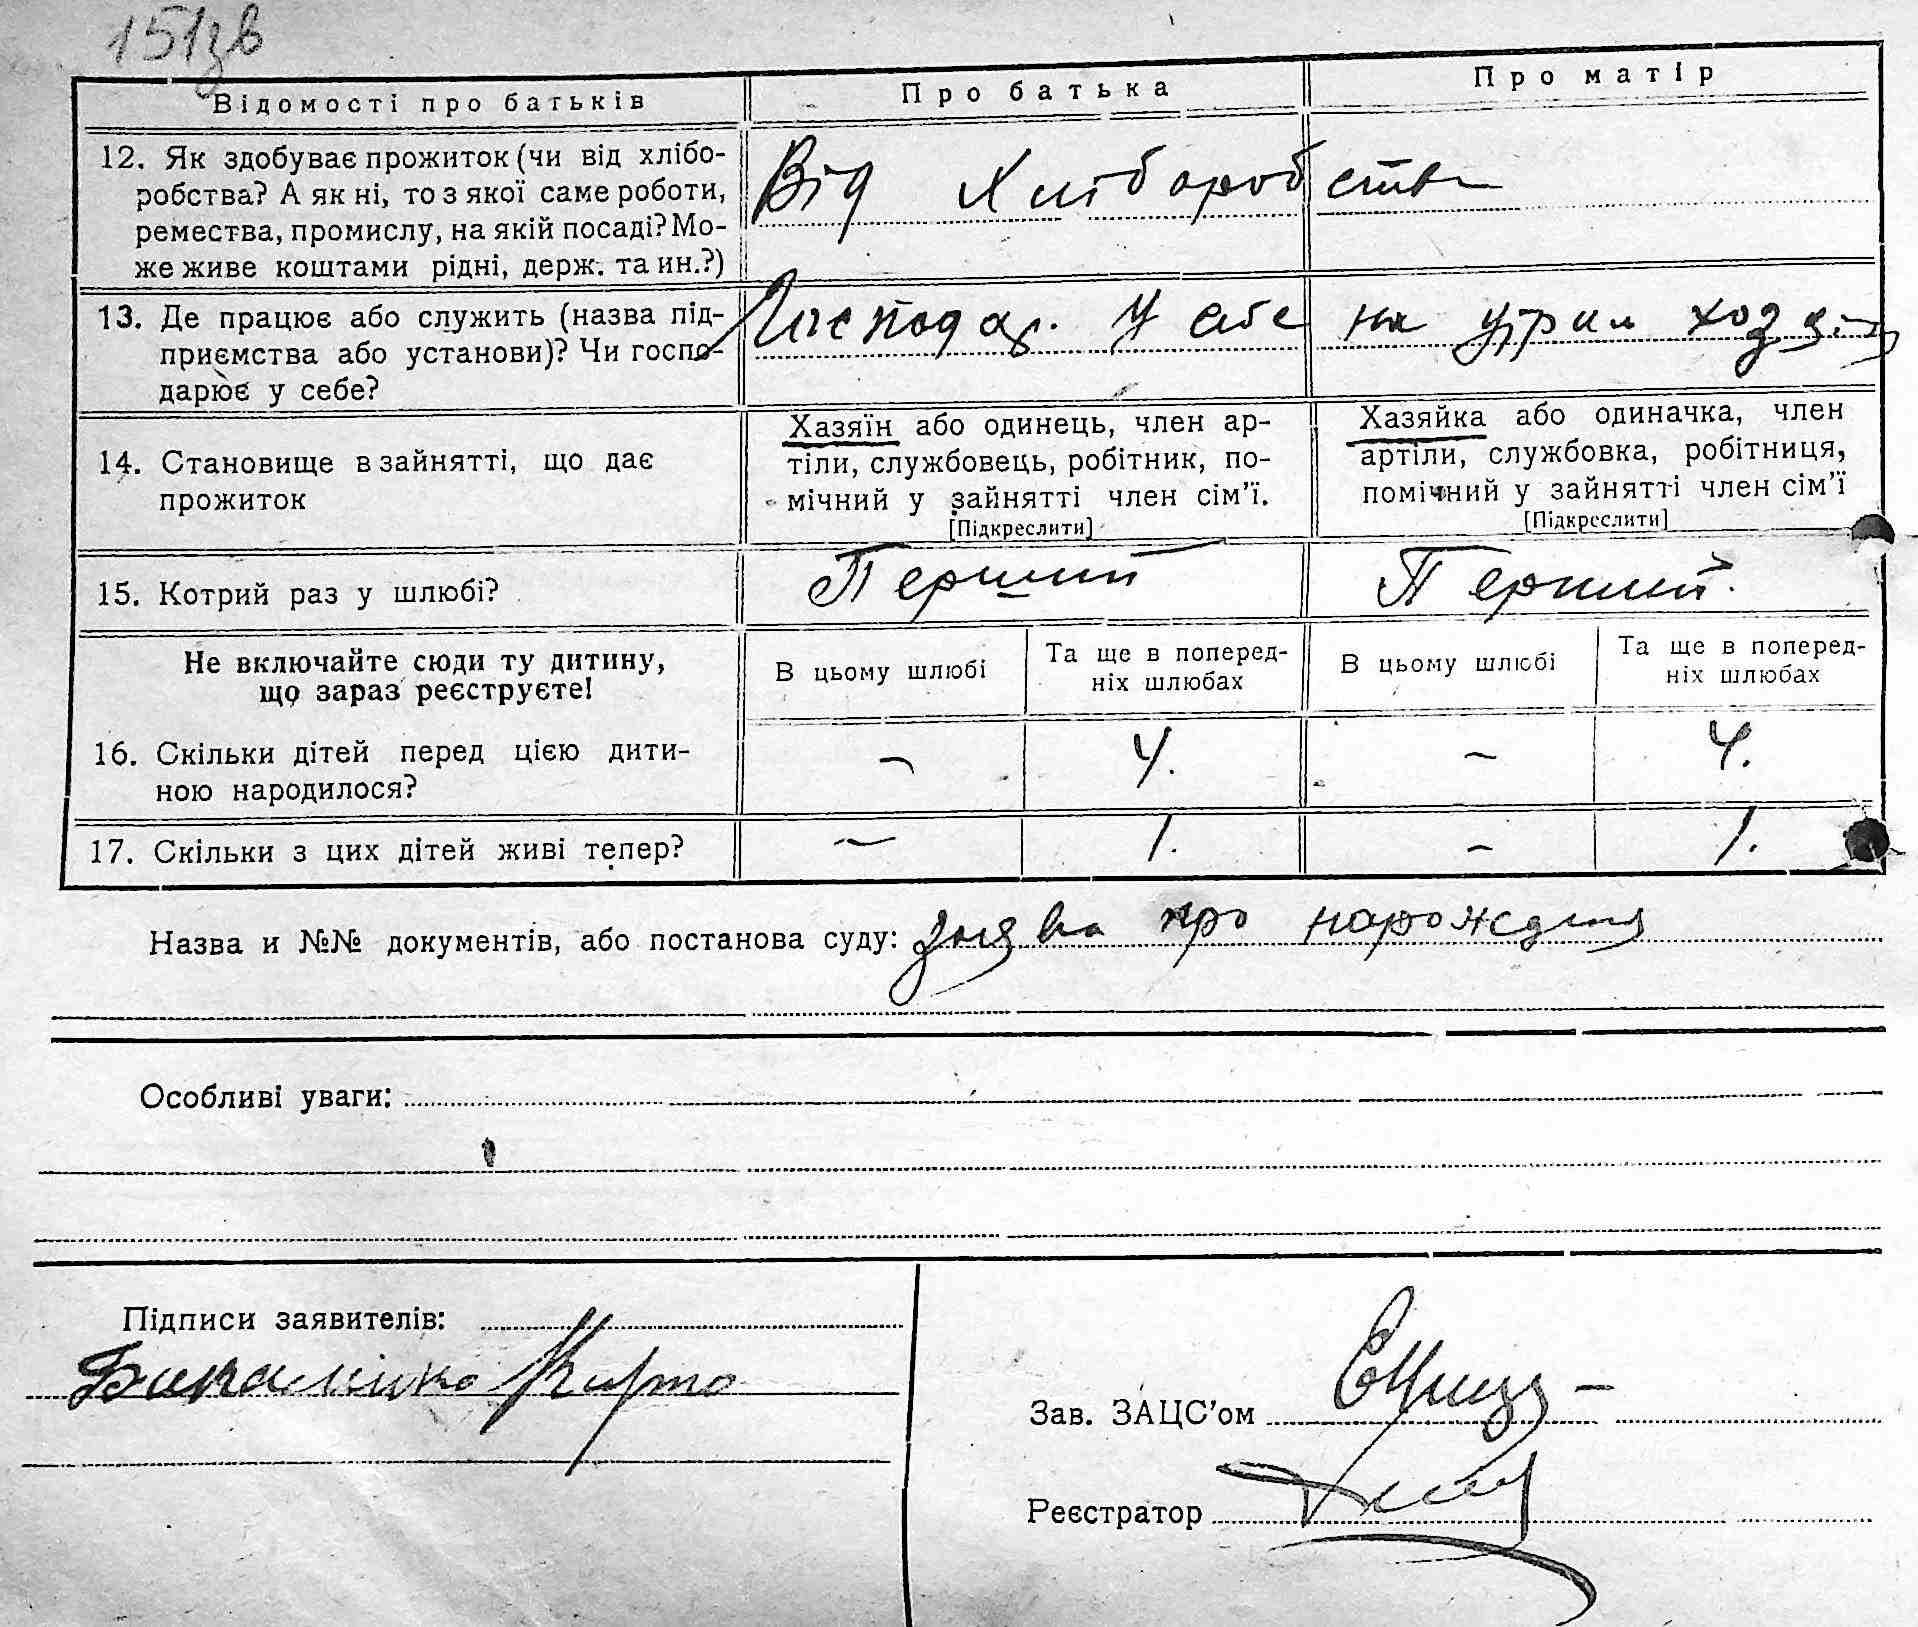 151зв
Відомості про батьків Про батька Про матір
12. Як здобуває прожиток (чи від хлібо-
робства? А як ні, то з якої саме роботи,
ремества, промислу, на якій посаді? Мо-
же живе коштами рідні, держ. та ин.?)
Від Хліборобства
13. Де працює або служить (назва під-
приємства або установи)? Чи госпо-
дарює у себе?
Господар. у себе на утрим
14. Становище в зайнятті, що дає
прожиток
Хазяїн або одинець, член ар-
тіли, службовець, робітник, по-
мічний у зайнятті член сім’ї.
[Підкреслити]
Хазяйка або одиначка, член
артіли, службовка, робітниця,
помічний у зайнятті член сім’ї
[Підкреслити]
15. Котрий раз у шлюбі? Перший Перший.
Не включайте сюди ту дитину,
що зараз реєструєте!
В цьому шлюбі
Та ще в поперед-
ніх шлюбах
В цьому шлюбі
Та ще в поперед-
ніх шлюбах
16. Скільки дітей перед цією дити-
ною народилося?
– 4. – 4.
17. Скільки з цих дітей живі тепер? – 1. – 1.
Назва и №№ документів, або постанова суду: заява про нарождения
Особливі уваги:
Підписи заявителів:
Зав. ЗАЦС’ом
Реєстратор